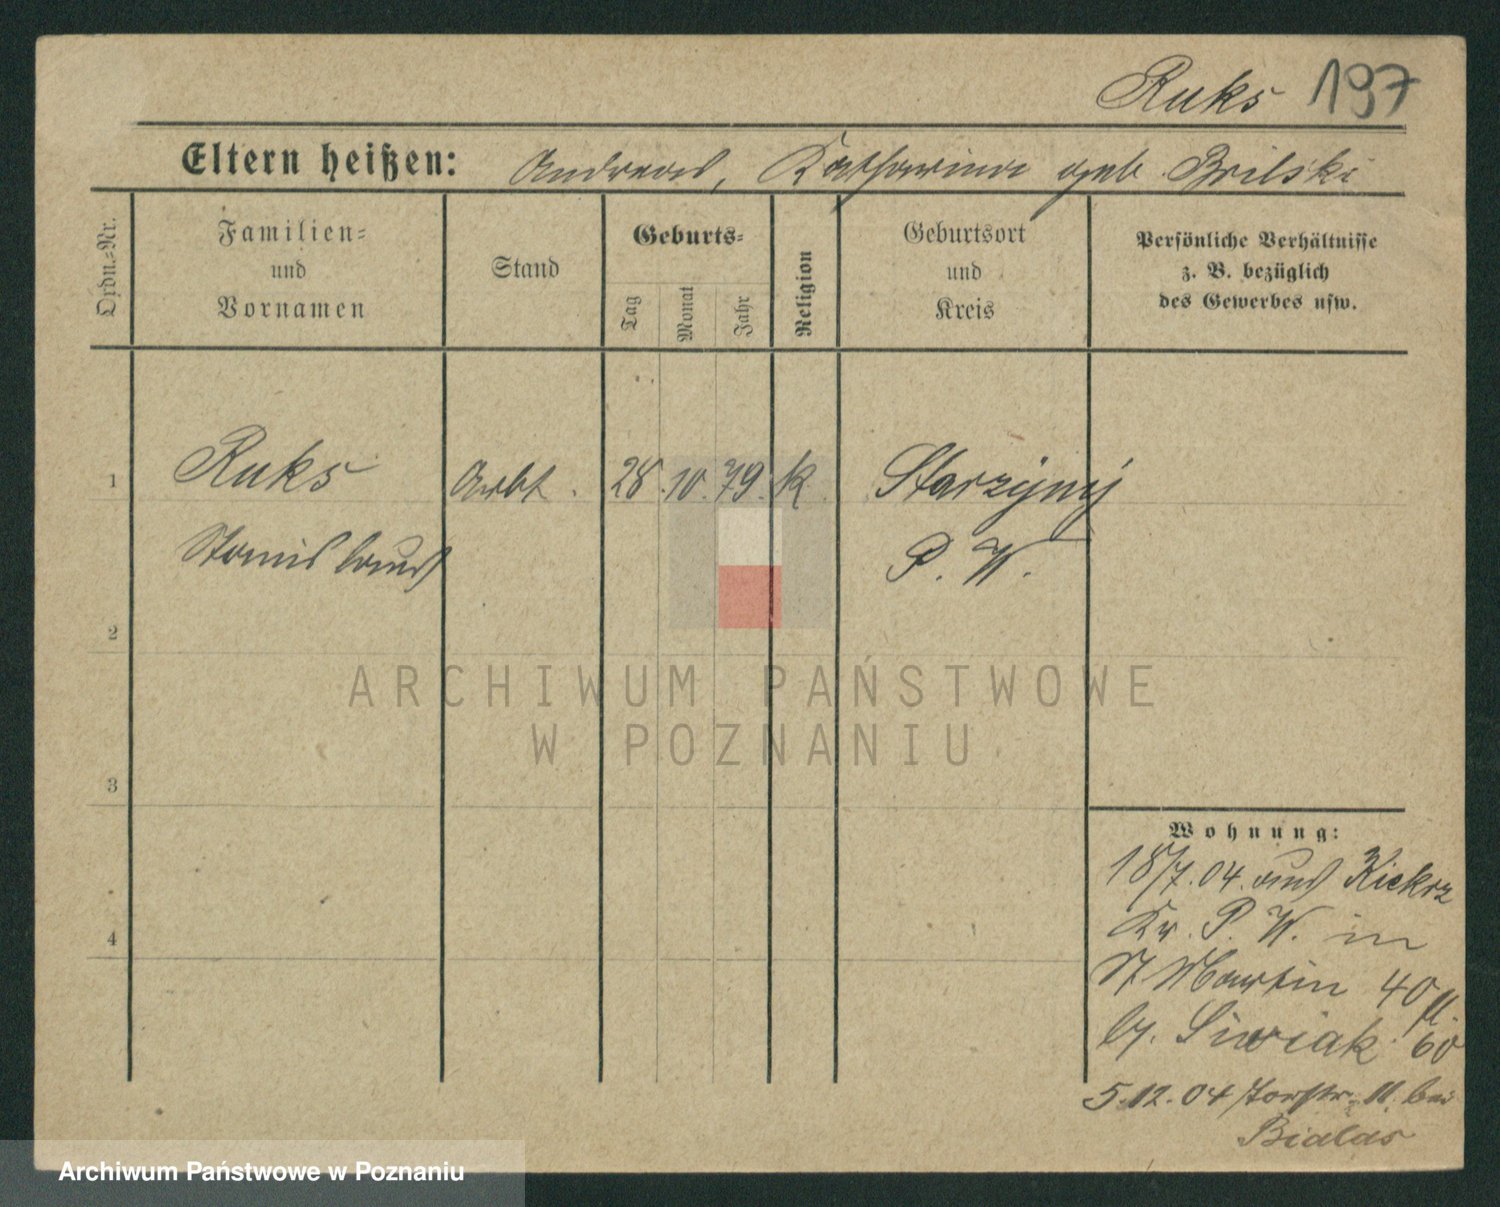 Ruks 197
Eltern heißen: Andreas, Katharina geb. Brilski
Ordn.-Nr.
Familien-
und
Vornamen
Stand
Geburts-
Tag
Monat
Jahr
Religion
Geburtsort
und
Kreis
Persönliche Verhältnisse
z. B. bezüglich
des Gewerbes usw.
1 Ruks Arbt. 28. 10. 79. K Starzyny
Stanislaus P. W.
2
3
4
ARCHIWUM PAŃSTWOWE
W POZNANIU
Wohnung:
18/7.04. aus Kiekrz
Kr. P. W. in
St Martin 40
b. Siwiak 60
5.12.04 Torstr. 11. bei
Bialas
Archiwum Państwowe w Poznaniu